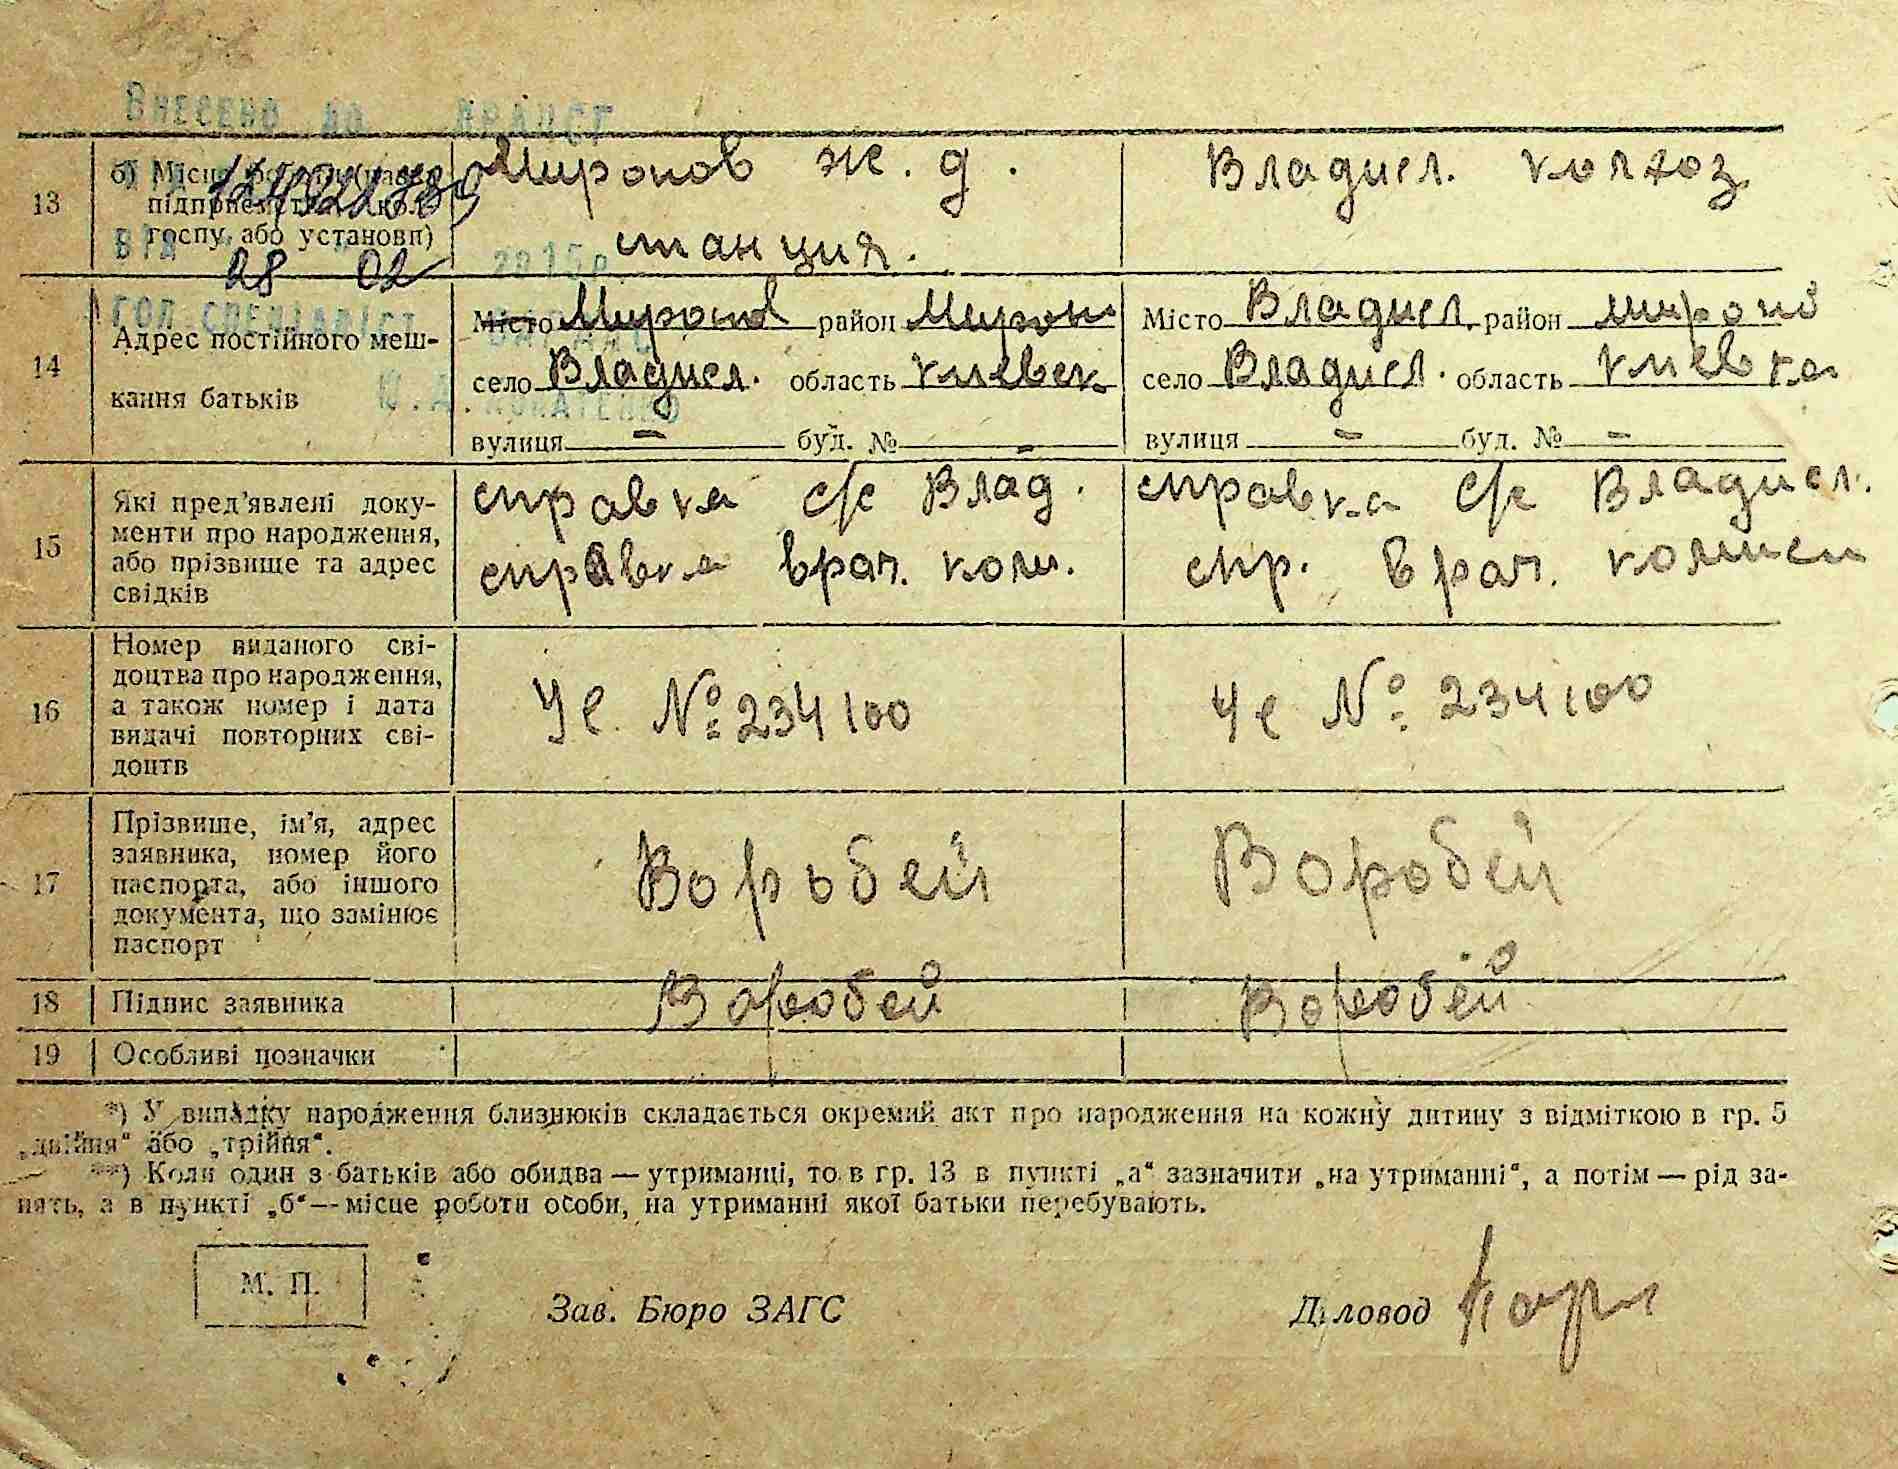 Внесено до ДРАЦСГ
13 б) Місце роботи (назва підприємства, колгоспу, або установи)
Миронов ж. д. станция.
Владисл. колхоз
від 28 02 2015 р
Гол. спеціаліст
14 Адрес постійного меш-
кання батьків
Місто Миронов район Мирон
село Владисл. область Киевск
вулиця — буд. № —
Місто Владисл. район Мирон
село Владисл. область Киевска
вулиця — буд. № —
15 Які пред'явлені доку-
менти про народження,
або прізвище та адрес
свідків
справка с/с Влад.
справка врач. ком.
справка с/с Владисл.
спр. врач. комисси
16 Номер виданого сві-
доцтва про народження,
а також номер і дата
видачі повторних сві-
доцтв
Че № 234100
Че № 234100
17 Прізвище, ім'я, адрес
заявника, номер його
паспорта, або іншого
документа, що замінює
паспорт
Воробей
Воробей
18 Підпис заявника
Воробей
Воробей
19 Особливі позначки
*) У випадку народження близнюків складається окремий акт про народження на кожну дитину з відміткою в гр. 5
„двійня“ або „трійня“.
**) Коли один з батьків або обидва — утриманці, то в гр. 13 в пункті „а“ зазначити „на утриманні“, а потім — рід за-
нять, а в пункті „б“ — місце роботи особи, на утриманні якої батьки перебувають.
М. П.
Зав. Бюро ЗАГС
Діловод